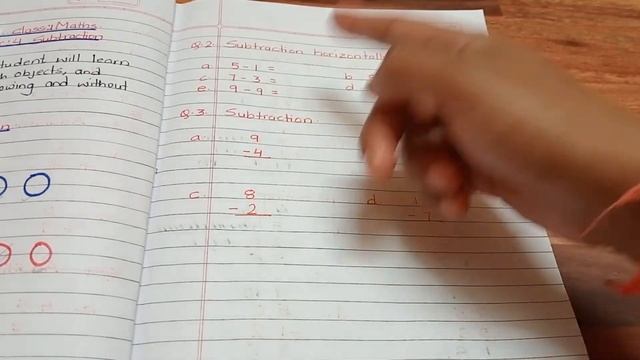 class:1 Maths
:4 Subtraction
student will learn
objects, and
owing and without
Q.2 Subtraction horizontall
a. 5-1=
b
c. 7-3=
d
e. 9-9=
Q.3. Subtraction.
a. 9
-4
c. 8
- 2
d.
- 7